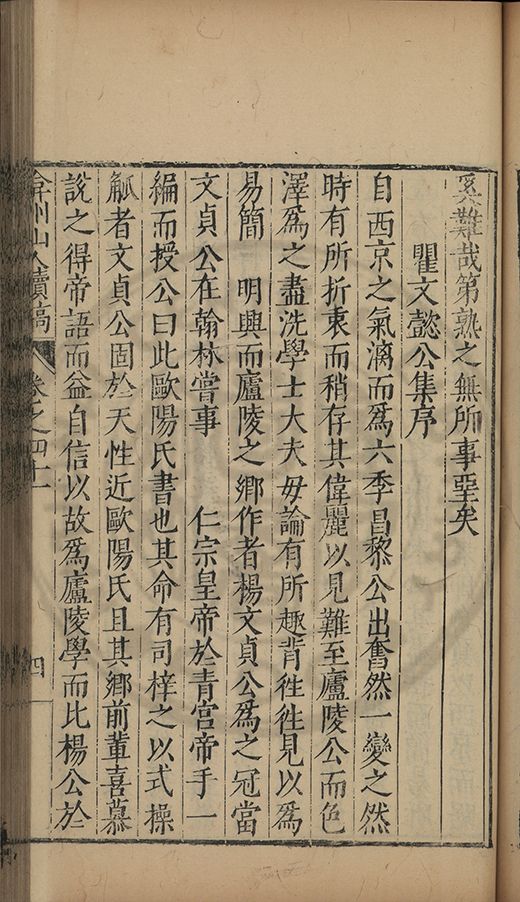 奚難哉第熟之無所事堊矣
瞿文懿公集序
自西京之氣漓而爲六季昌黎公出奮然一變之然
時有所折衷而稍存其偉麗以見難至廬陵公而色
澤爲之盡洗學士大夫毋論有所趣背徃徃見以爲
易簡　明興而廬陵之鄉作者楊文貞公爲之冠當
文貞公在翰林嘗事　仁宗皇帝於青宮帝手一
編而授公曰此歐陽氏書也其命有司梓之以式操
觚者文貞公固於天性近歐陽氏且其鄉前輩喜慕
說之得帝語而益自信以故爲廬陵學而比楊公於
弇州山人續稿 卷之四十一 四